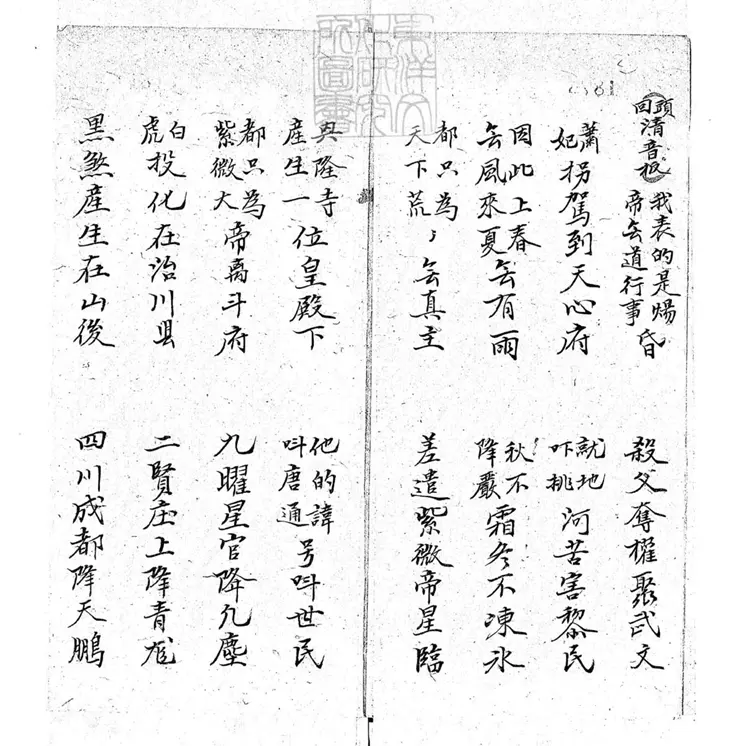 東洋文化研究所圖書
回頭清音板 我表的是煬帝無道行事昏 殺父奪權聚武文
蕭妃拐駕到天心府 就地吓挑河苦害黎民
因此上春無風來夏無有雨 秋不降嚴霜冬不凍冰
都只為天下荒〻無真主 差遣紫微帝星臨
興隆寺產生一位皇殿下 他的諱叫唐通号叫世民
都只為紫微大帝离斗府 九曜星官降凡塵
白虎投化在治川县 二賢庄上降青龙
黑煞產生在山後 四川成都降天鵬